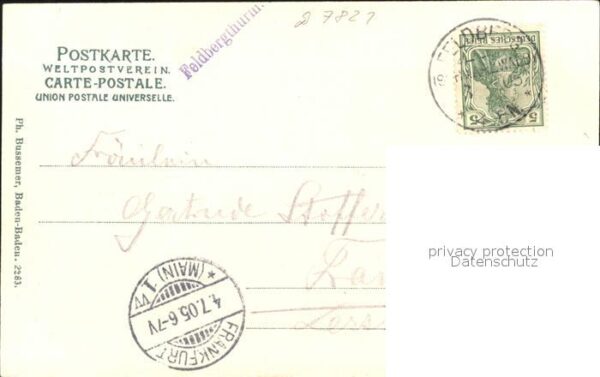 D 7821
Feldbergthurm
POSTKARTE.
WELTPOSTVEREIN.
CARTE-POSTALE.
UNION POSTALE UNIVERSELLE.
FELDBE
DEUTSCHES REICH
5 5
Fräulein
Gertrude Stoffer
privacy protection
Datenschutz
Ph. Bussemer, Baden-Baden. 2283.
FRANKFURT
* (MAIN) 1 *
4.7.05.6-7V